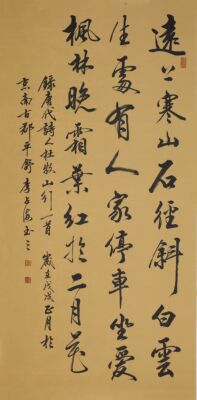 遠上寒山石徑斜白雲
生處有人家停車坐愛
楓林晚霜葉紅於二月花
錄唐代詩人杜牧山行一首 歲在戊戌正月於
京南古郡平舒 李占海